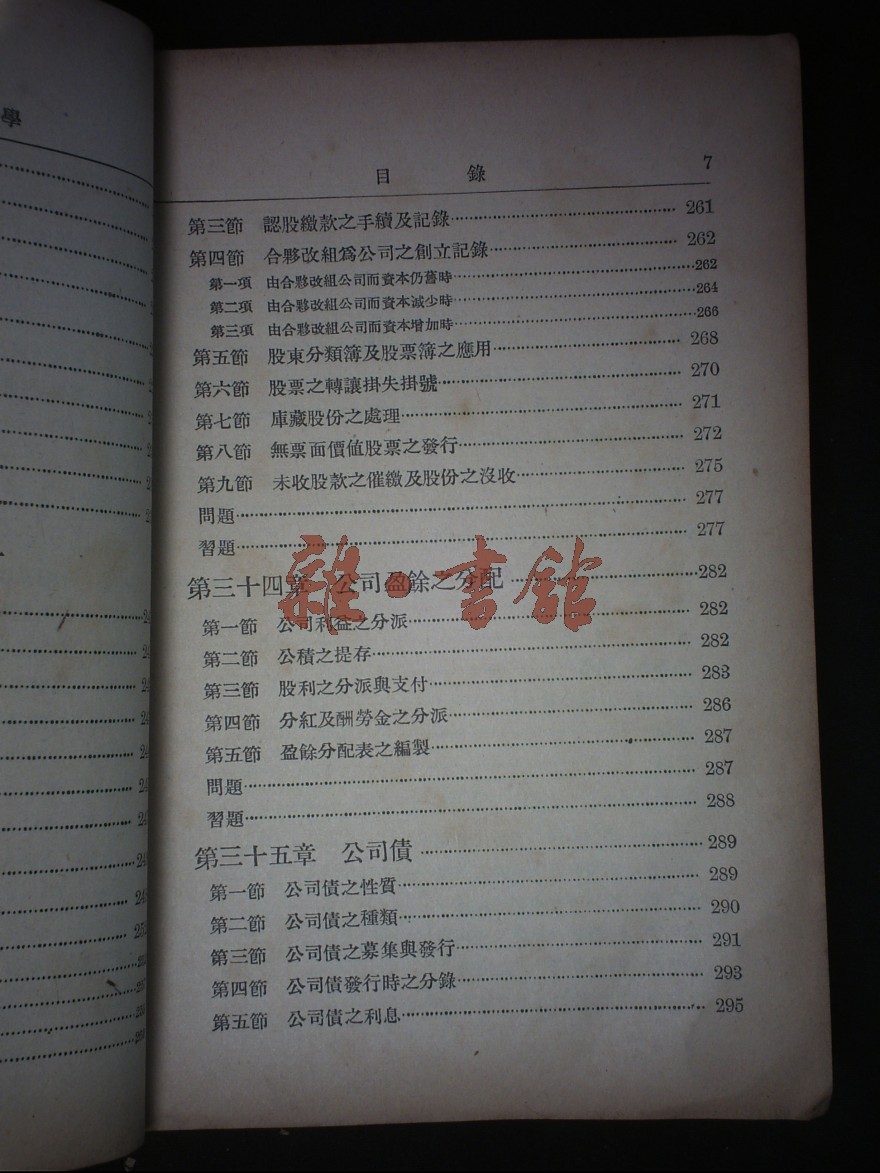 目錄 7
第三節 認股繳款之手續及記錄 261
第四節 合夥改組爲公司之創立記錄 262
第一項 由合夥改組公司而資本仍舊時 262
第二項 由合夥改組公司而資本減少時 264
第三項 由合夥改組公司而資本增加時 266
第五節 股東分類簿及股票簿之應用 268
第六節 股票之轉讓掛失掛號 270
第七節 庫藏股份之處理 271
第八節 無票面價值股票之發行 272
第九節 未收股款之催繳及股份之沒收 275
問題 277
習題 277
第三十四章 公司盈餘之分配 282
第一節 公司利益之分派 282
第二節 公積之提存 282
第三節 股利之分派與支付 283
第四節 分紅及酬勞金之分派 286
第五節 盈餘分配表之編製 287
問題 287
習題 288
第三十五章 公司債 289
第一節 公司債之性質 289
第二節 公司債之種類 290
第三節 公司債之募集與發行 291
第四節 公司債發行時之分錄 293
第五節 公司債之利息 295
雜·書館